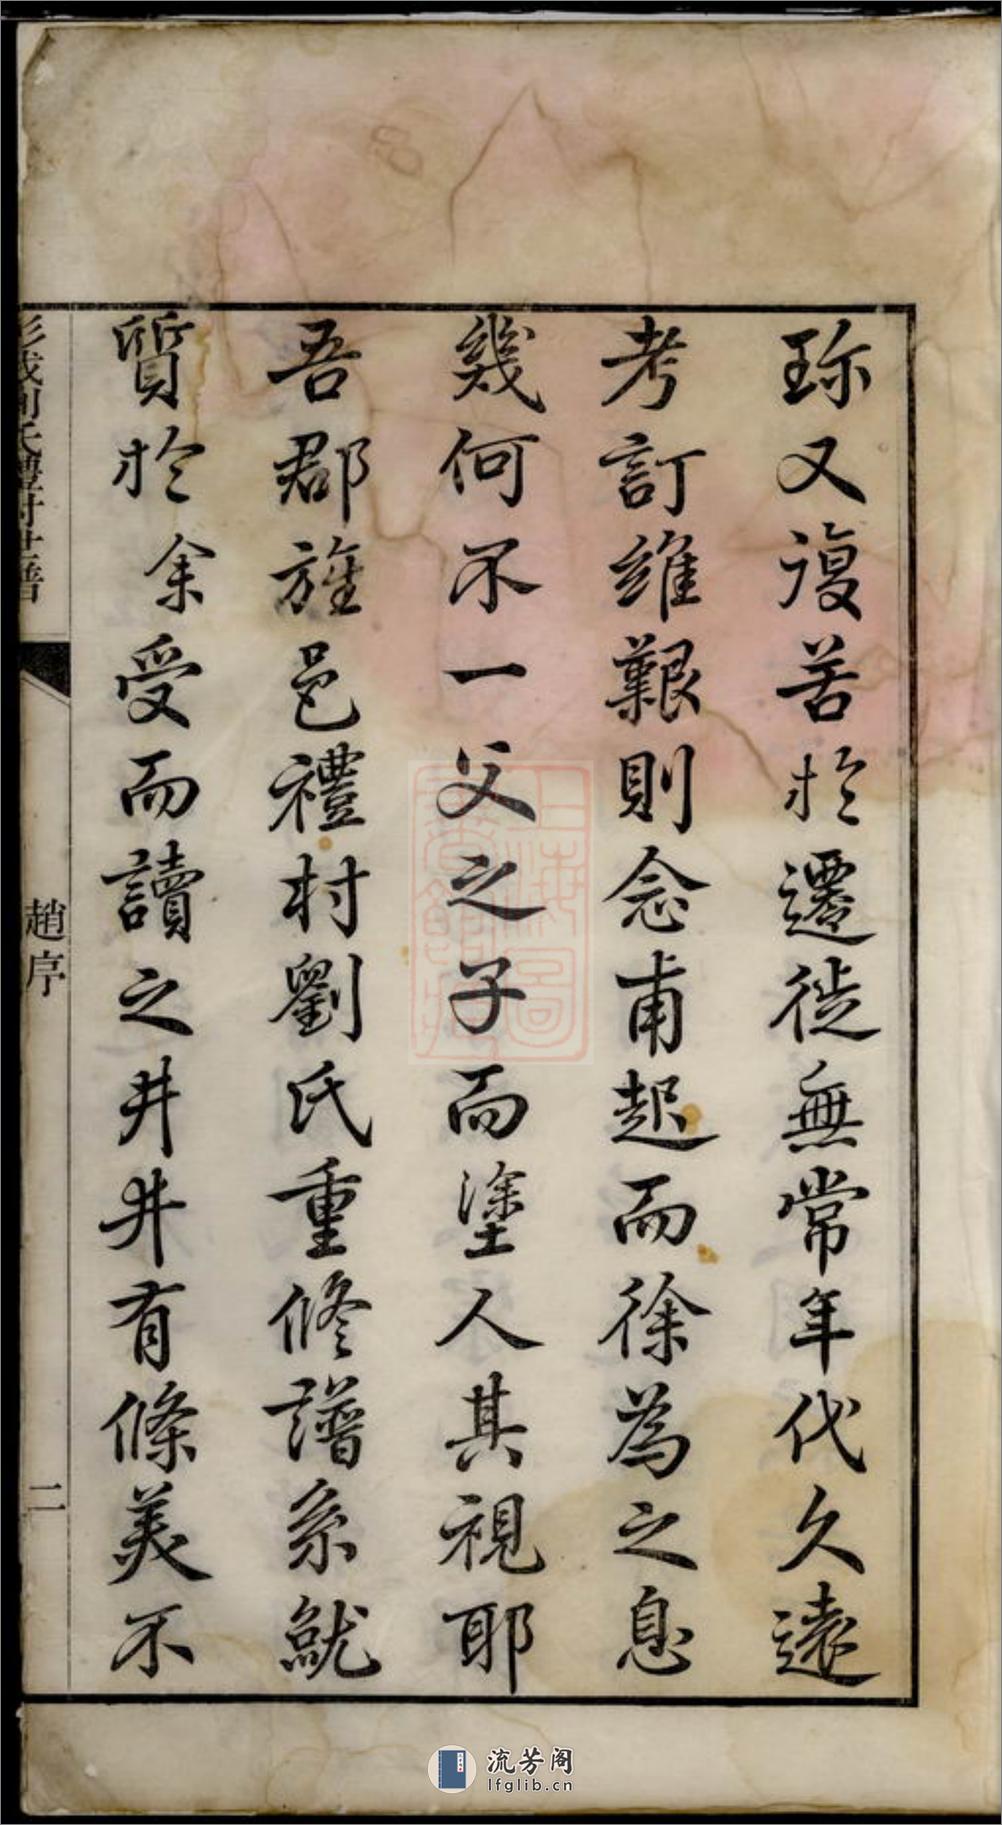 珎又復苦於遷徙無常年代久遠
考訂維艱則念甫起而徐為之息
幾何不一父之子而塗人其視耶
吾郡旌邑禮村劉氏重修譜系就
質於余受而讀之井井有條美不
彭城劉氏禮村世譜
趙序
二
上海圖
書館藏
流芳阁
lfglib.cn